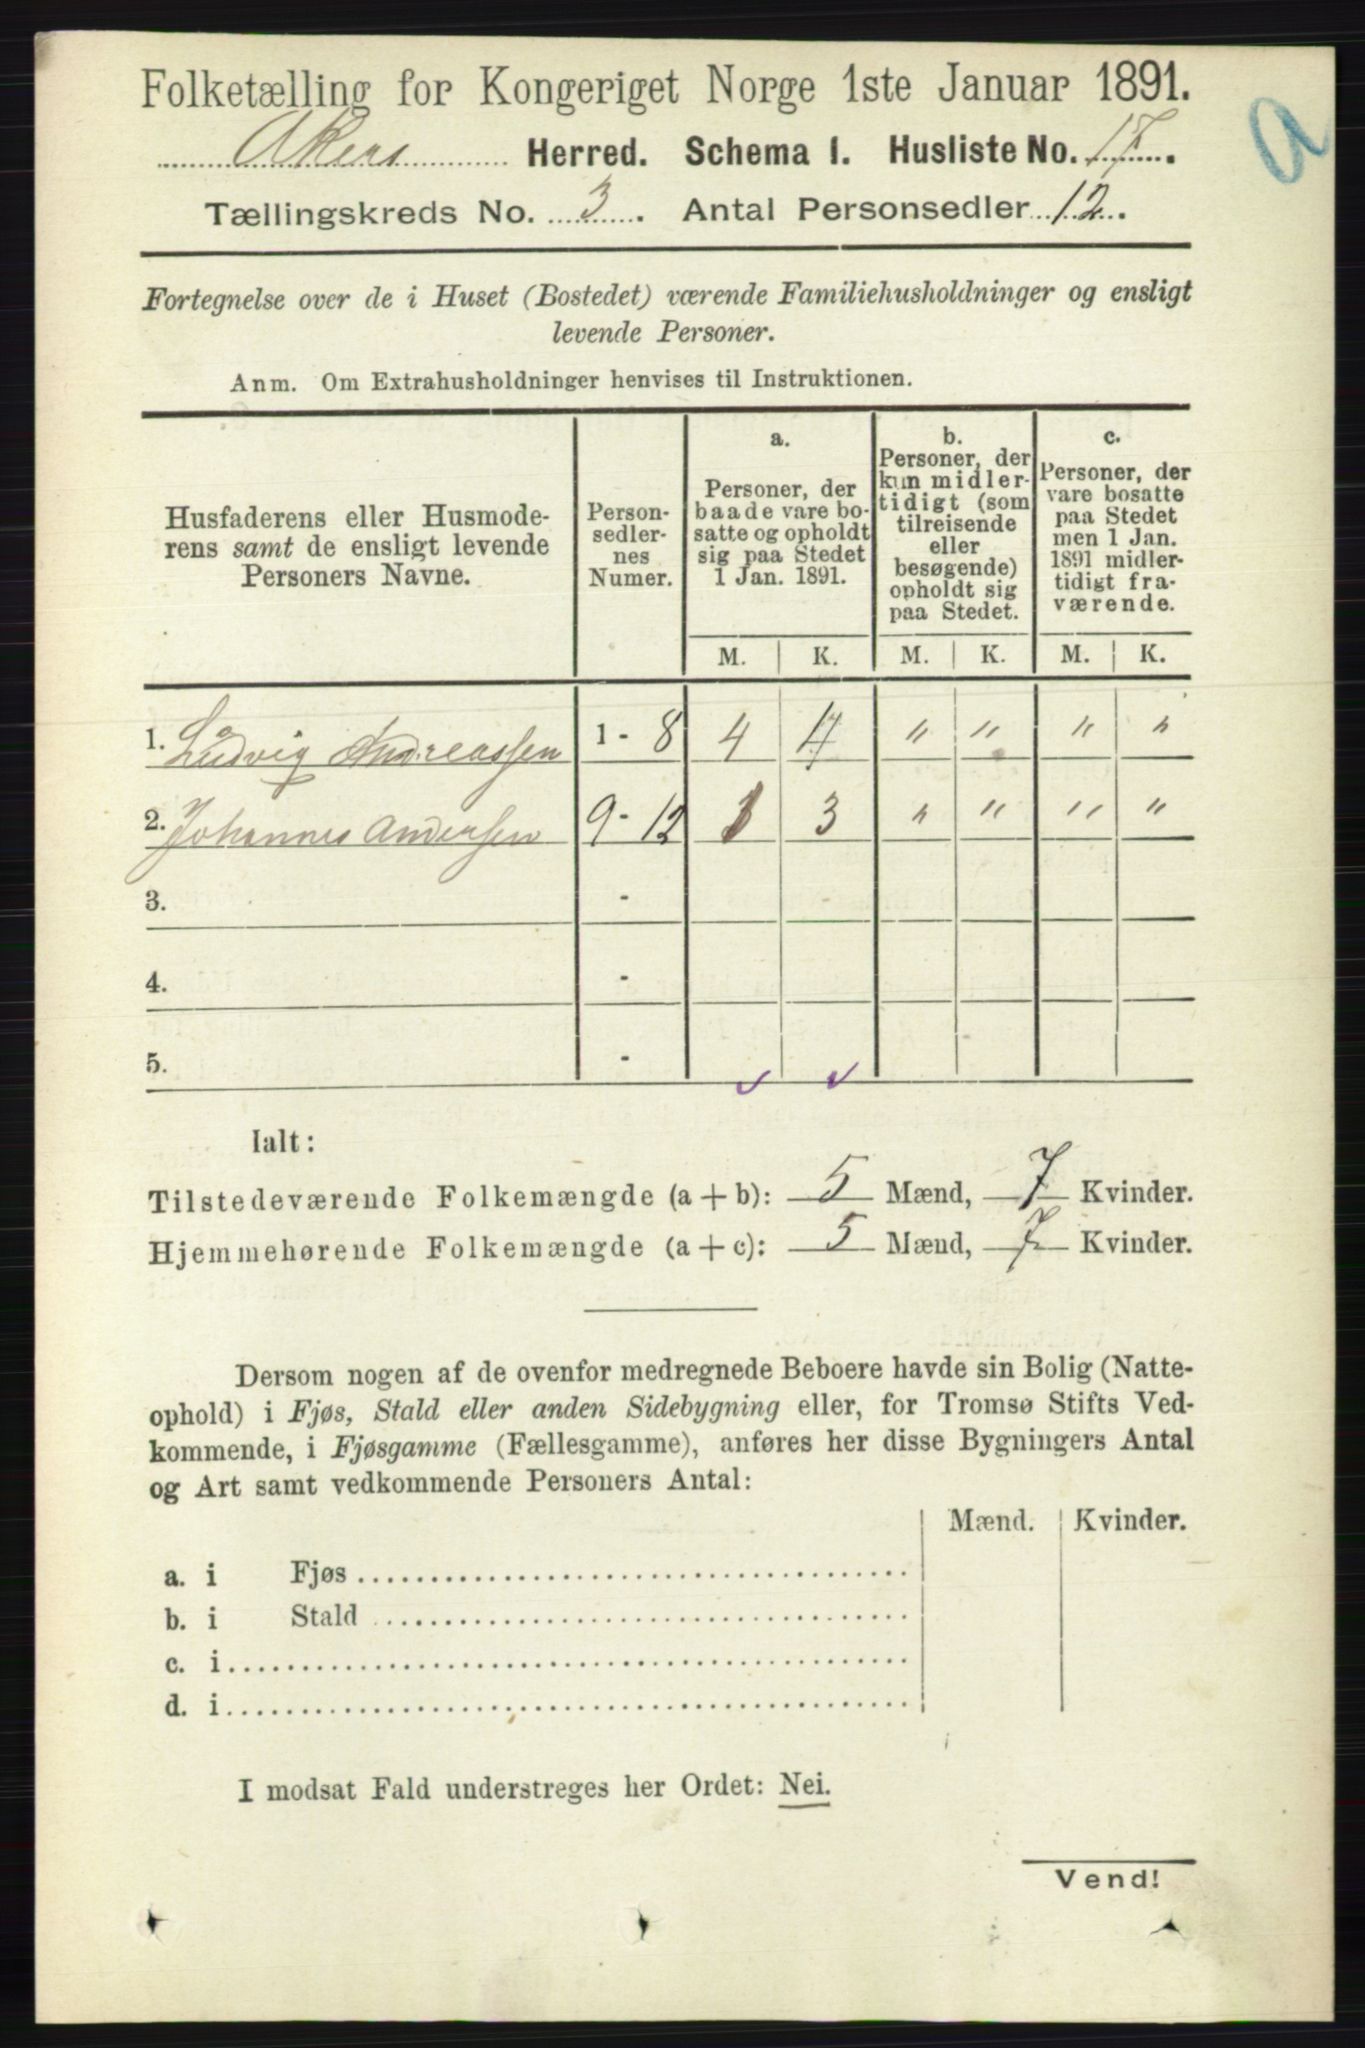 Folketælling for Kongeriget Norge 1ste Januar 1891.
a
Akers Herred. Schema I. Husliste No. 17.
Tællingskreds No. 3. Antal Personsedler 12.
Fortegnelse over de i Huset (Bostedet) værende Familiehusholdninger og ensligt
levende Personer.
Anm. Om Extrahusholdninger henvises til Instruktionen.
Husfaderens eller Husmode-
rens samt de ensligt levende
Personers Navne.
Person-
sedler-
nes
Numer.
a.
Personer, der
baade vare bo-
satte og opholdt
sig paa Stedet
1 Jan. 1891.
b.
Personer, der
kun midler-
tidigt (som
tilreisende
eller
besøgende)
opholdt sig
paa Stedet.
c.
Personer, der
vare bosatte
paa Stedet
men 1 Jan.
1891 midler-
tidigt fra-
værende.
M. K. M. K. M. K.
1. Ludvig Andreassen 1 - 8 4 4 " " " "
2. Johannes Andersen 9 - 12 1 3 " " " "
3. -
4. -
5. -
Ialt:
Tilstedeværende Folkemængde (a + b): 5 Mænd, 7 Kvinder.
Hjemmehørende Folkemængde (a + c): 5 Mænd, 7 Kvinder.
Dersom nogen af de ovenfor medregnede Beboere havde sin Bolig (Natte-
ophold) i Fjøs, Stald eller anden Sidebygning eller, for Tromsø Stifts Ved-
kommende, i Fjøsgamme (Fællesgamme), anføres her disse Bygningers Antal
og Art samt vedkommende Personers Antal:
Mænd. Kvinder.
a. i Fjøs
b. i Stald
c. i
d. i
I modsat Fald understreges her Ordet: Nei.
Vend!